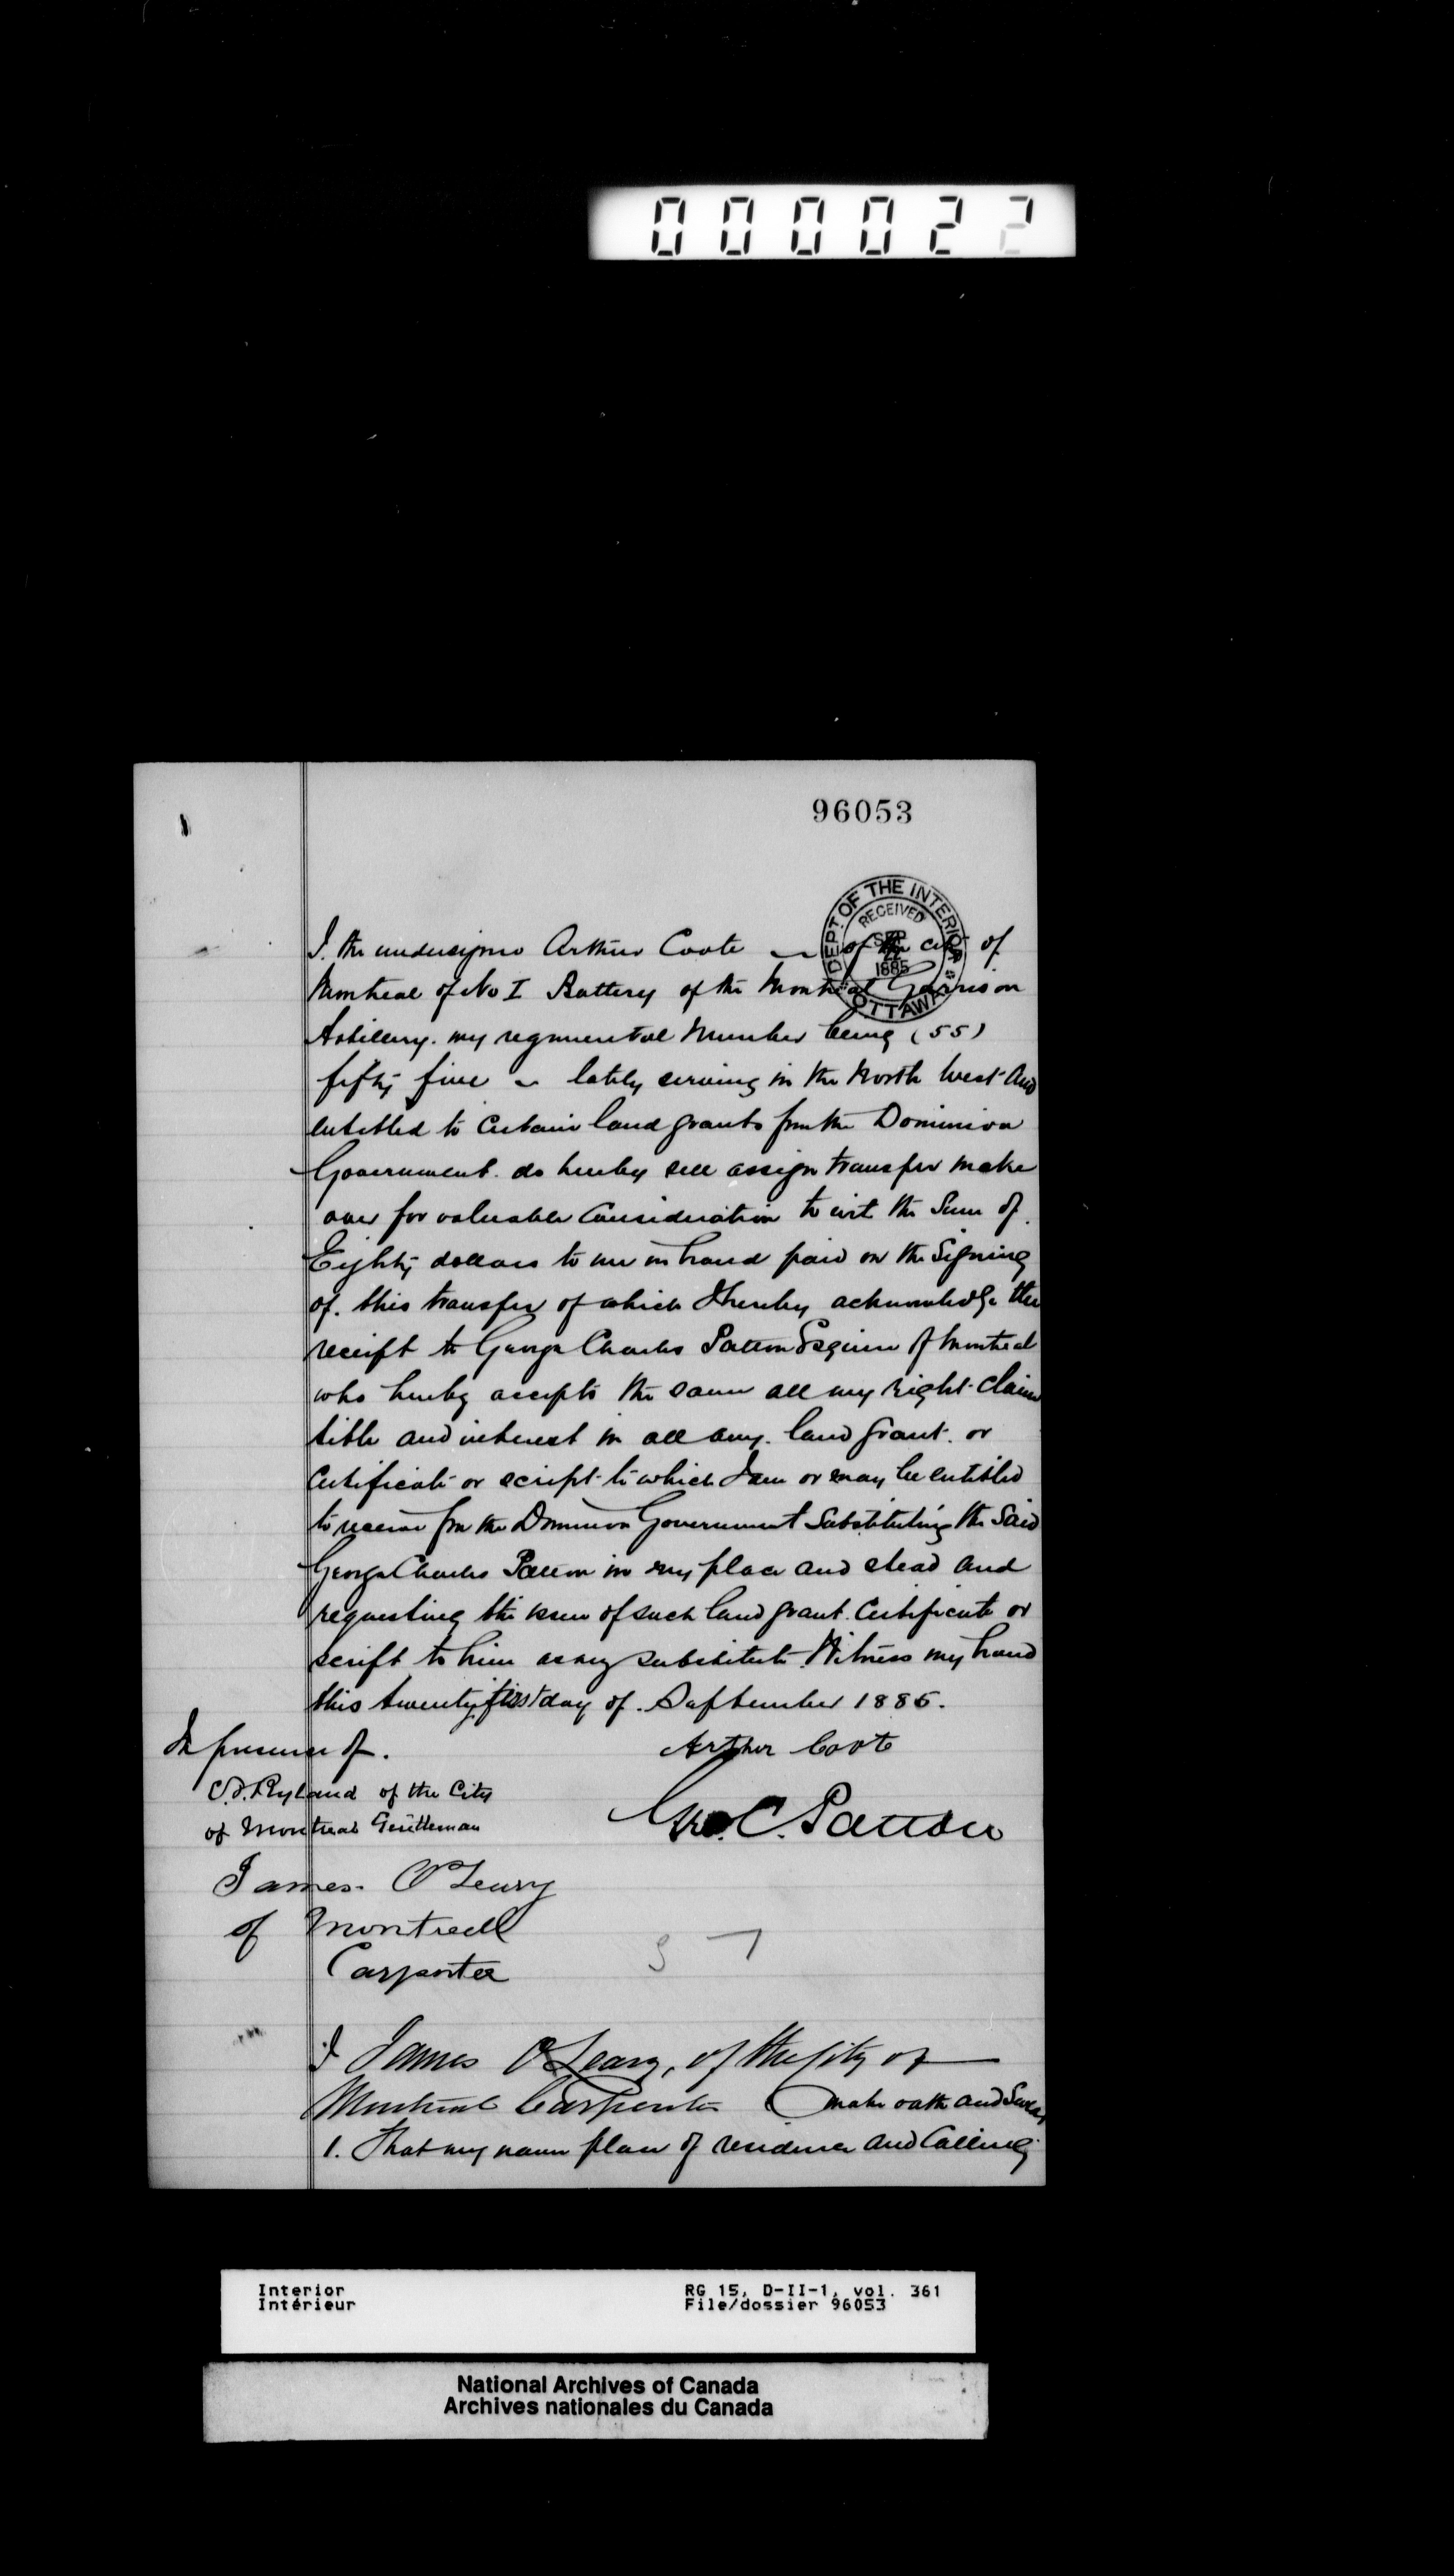 000022
96053
DEPT. OF THE INTERIOR
RECEIVED
SEP
22
1885
OTTAWA
I. the undersigned Arthur Coote of the city of
Montreal of No I Battery of the Montreal Garrison
Artillery. my regimental Number being (55)
fifty five lately serving in the North West and
entitled to certain land grants from the Dominion
Government. do hereby sell assign transfer make
over for valuable consideration to wit the Sum of
Eighty dollars to me in hand paid on the signing
of. this transfer of which I hereby acknowledge the
receipt to George Charles Patton Esquire of Montreal
who hereby accepts the same all my right claim
title and interest in all any. land grant. or
Certificate or script to which I am or may be entitled
to receive from the Dominion Government Substituting the Said
George Charles Patton in my place and stead and
requesting the issue of such land grant. Certificate or
script to him as my substitute. Witness my hand
this twenty first day of. September 1885.
In presence of.
Arthur Coote
C.D. Ryland of the City
of Montreal Gentleman
Geo. C. Patton
James. O'Leary
of Montreall
Carpenter
I James O'Leary, of the City of
Montreal Carpenter make oath and Swear
1. That my name place of residence and Calling
Interior
Intérieur
RG 15, D-II-1, vol. 361
File/dossier 96053
National Archives of Canada
Archives nationales du Canada